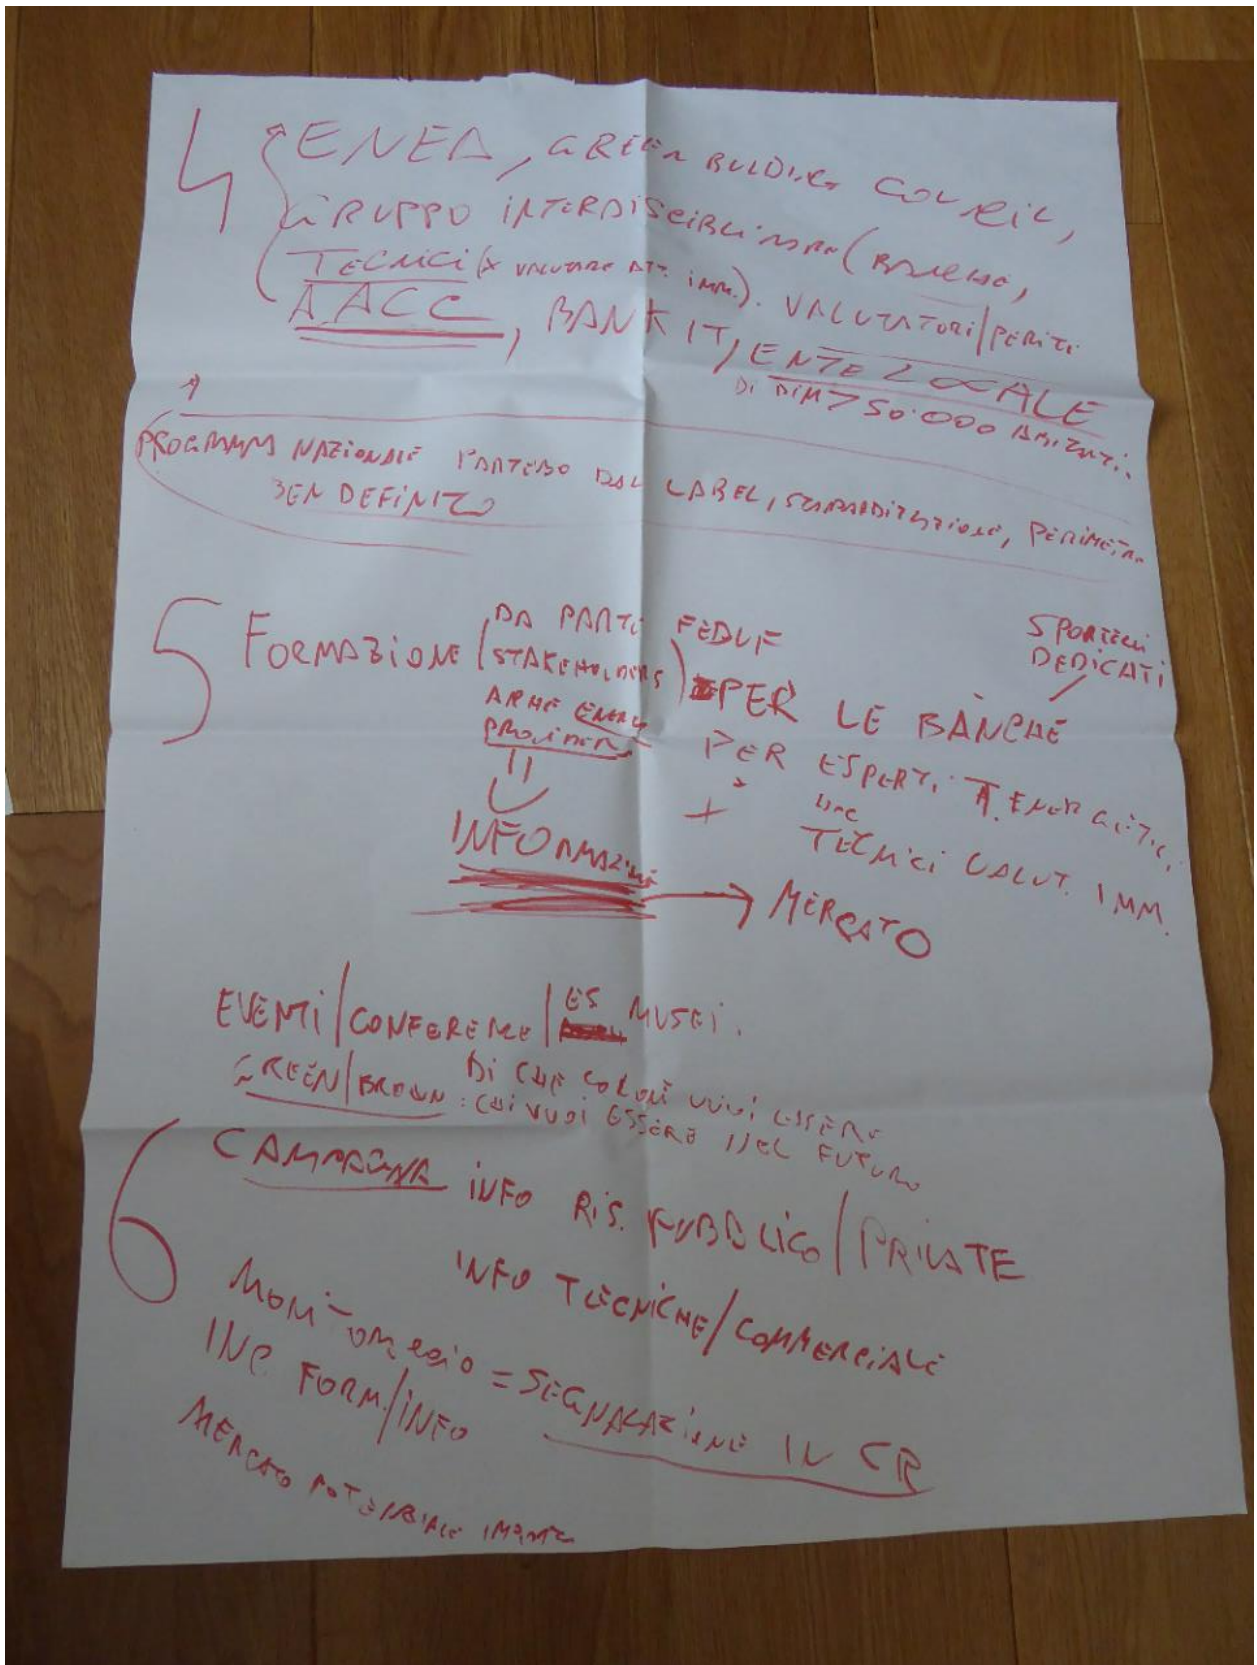 4 ENEA, GREEN BUILDING COUNCIL,
GRUPPO INTERDISCIPLINARE (BANCHE,
TECNICI (X VALUTARE ATT. IMM.). VALUTATORI/PERITI
AACC, BANKIT, ENTE LOCALE
DI DIM > 50.000 ABITANTI.
PROGRAMMA NAZIONALE PARTENDO DAL LABEL, STANDARDIZZAZIONE, PERIMETRO
BEN DEFINITO
5 FORMAZIONE (DA PARTE FEDUF
STAKEHOLDERS)
ANCHE ENERGY
PROVIDER
PER LE BANCHE
SPORTELLI
DEDICATI
PER ESPERTI A. ENERGETICI
+ TECNICI VALUT. IMM.
INFORMAZIONE → MERCATO
EVENTI/CONFERENZE/ES MUSEI.
GREEN/BROWN: DI CHE COLORE VUOI ESSERE
CHI VUOI ESSERE NEL FUTURO
6 CAMPAGNA INFO RIS. PUBBLICO/PRIVATE
INFO TECNICHE/COMMERCIALI
MONITORAGGIO = SEGNALAZIONE IN CR
FORM/INFO
MERCATO POTENZIALE